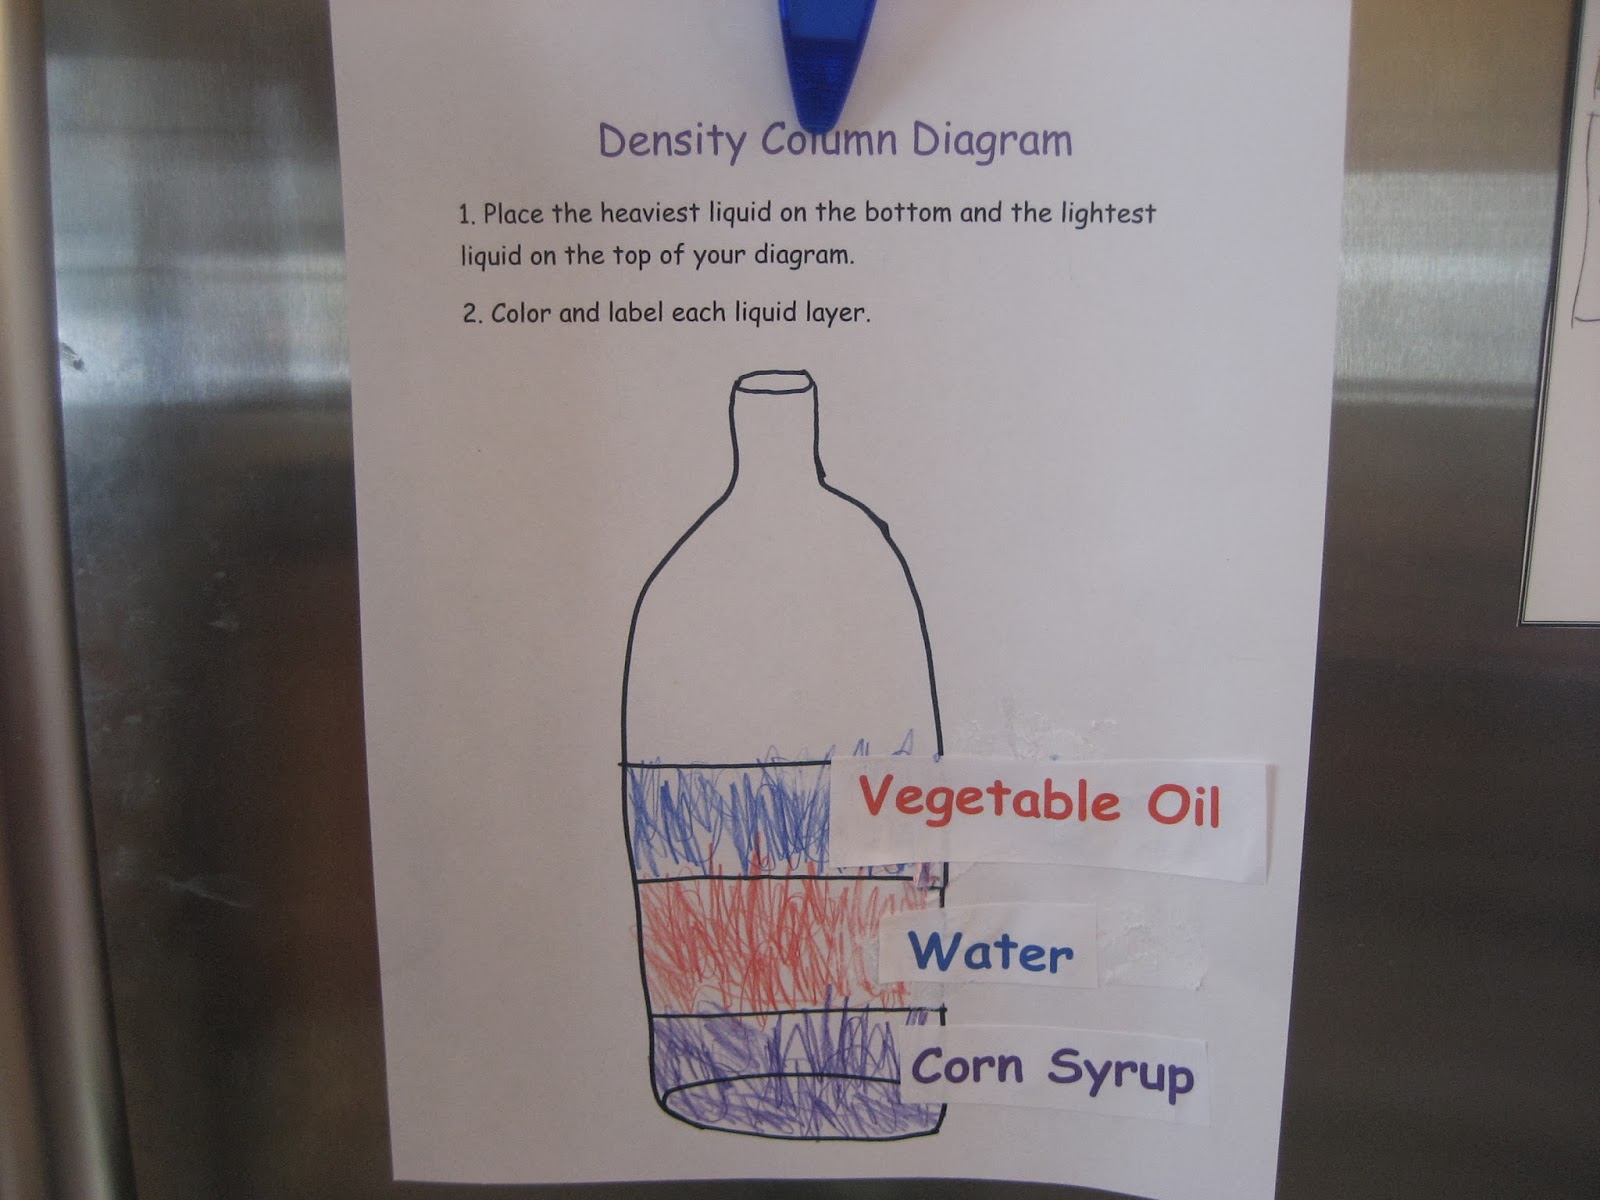 Density Column Diagram
1. Place the heaviest liquid on the bottom and the lightest
liquid on the top of your diagram.
2. Color and label each liquid layer.
Vegetable Oil
Water
Corn Syrup